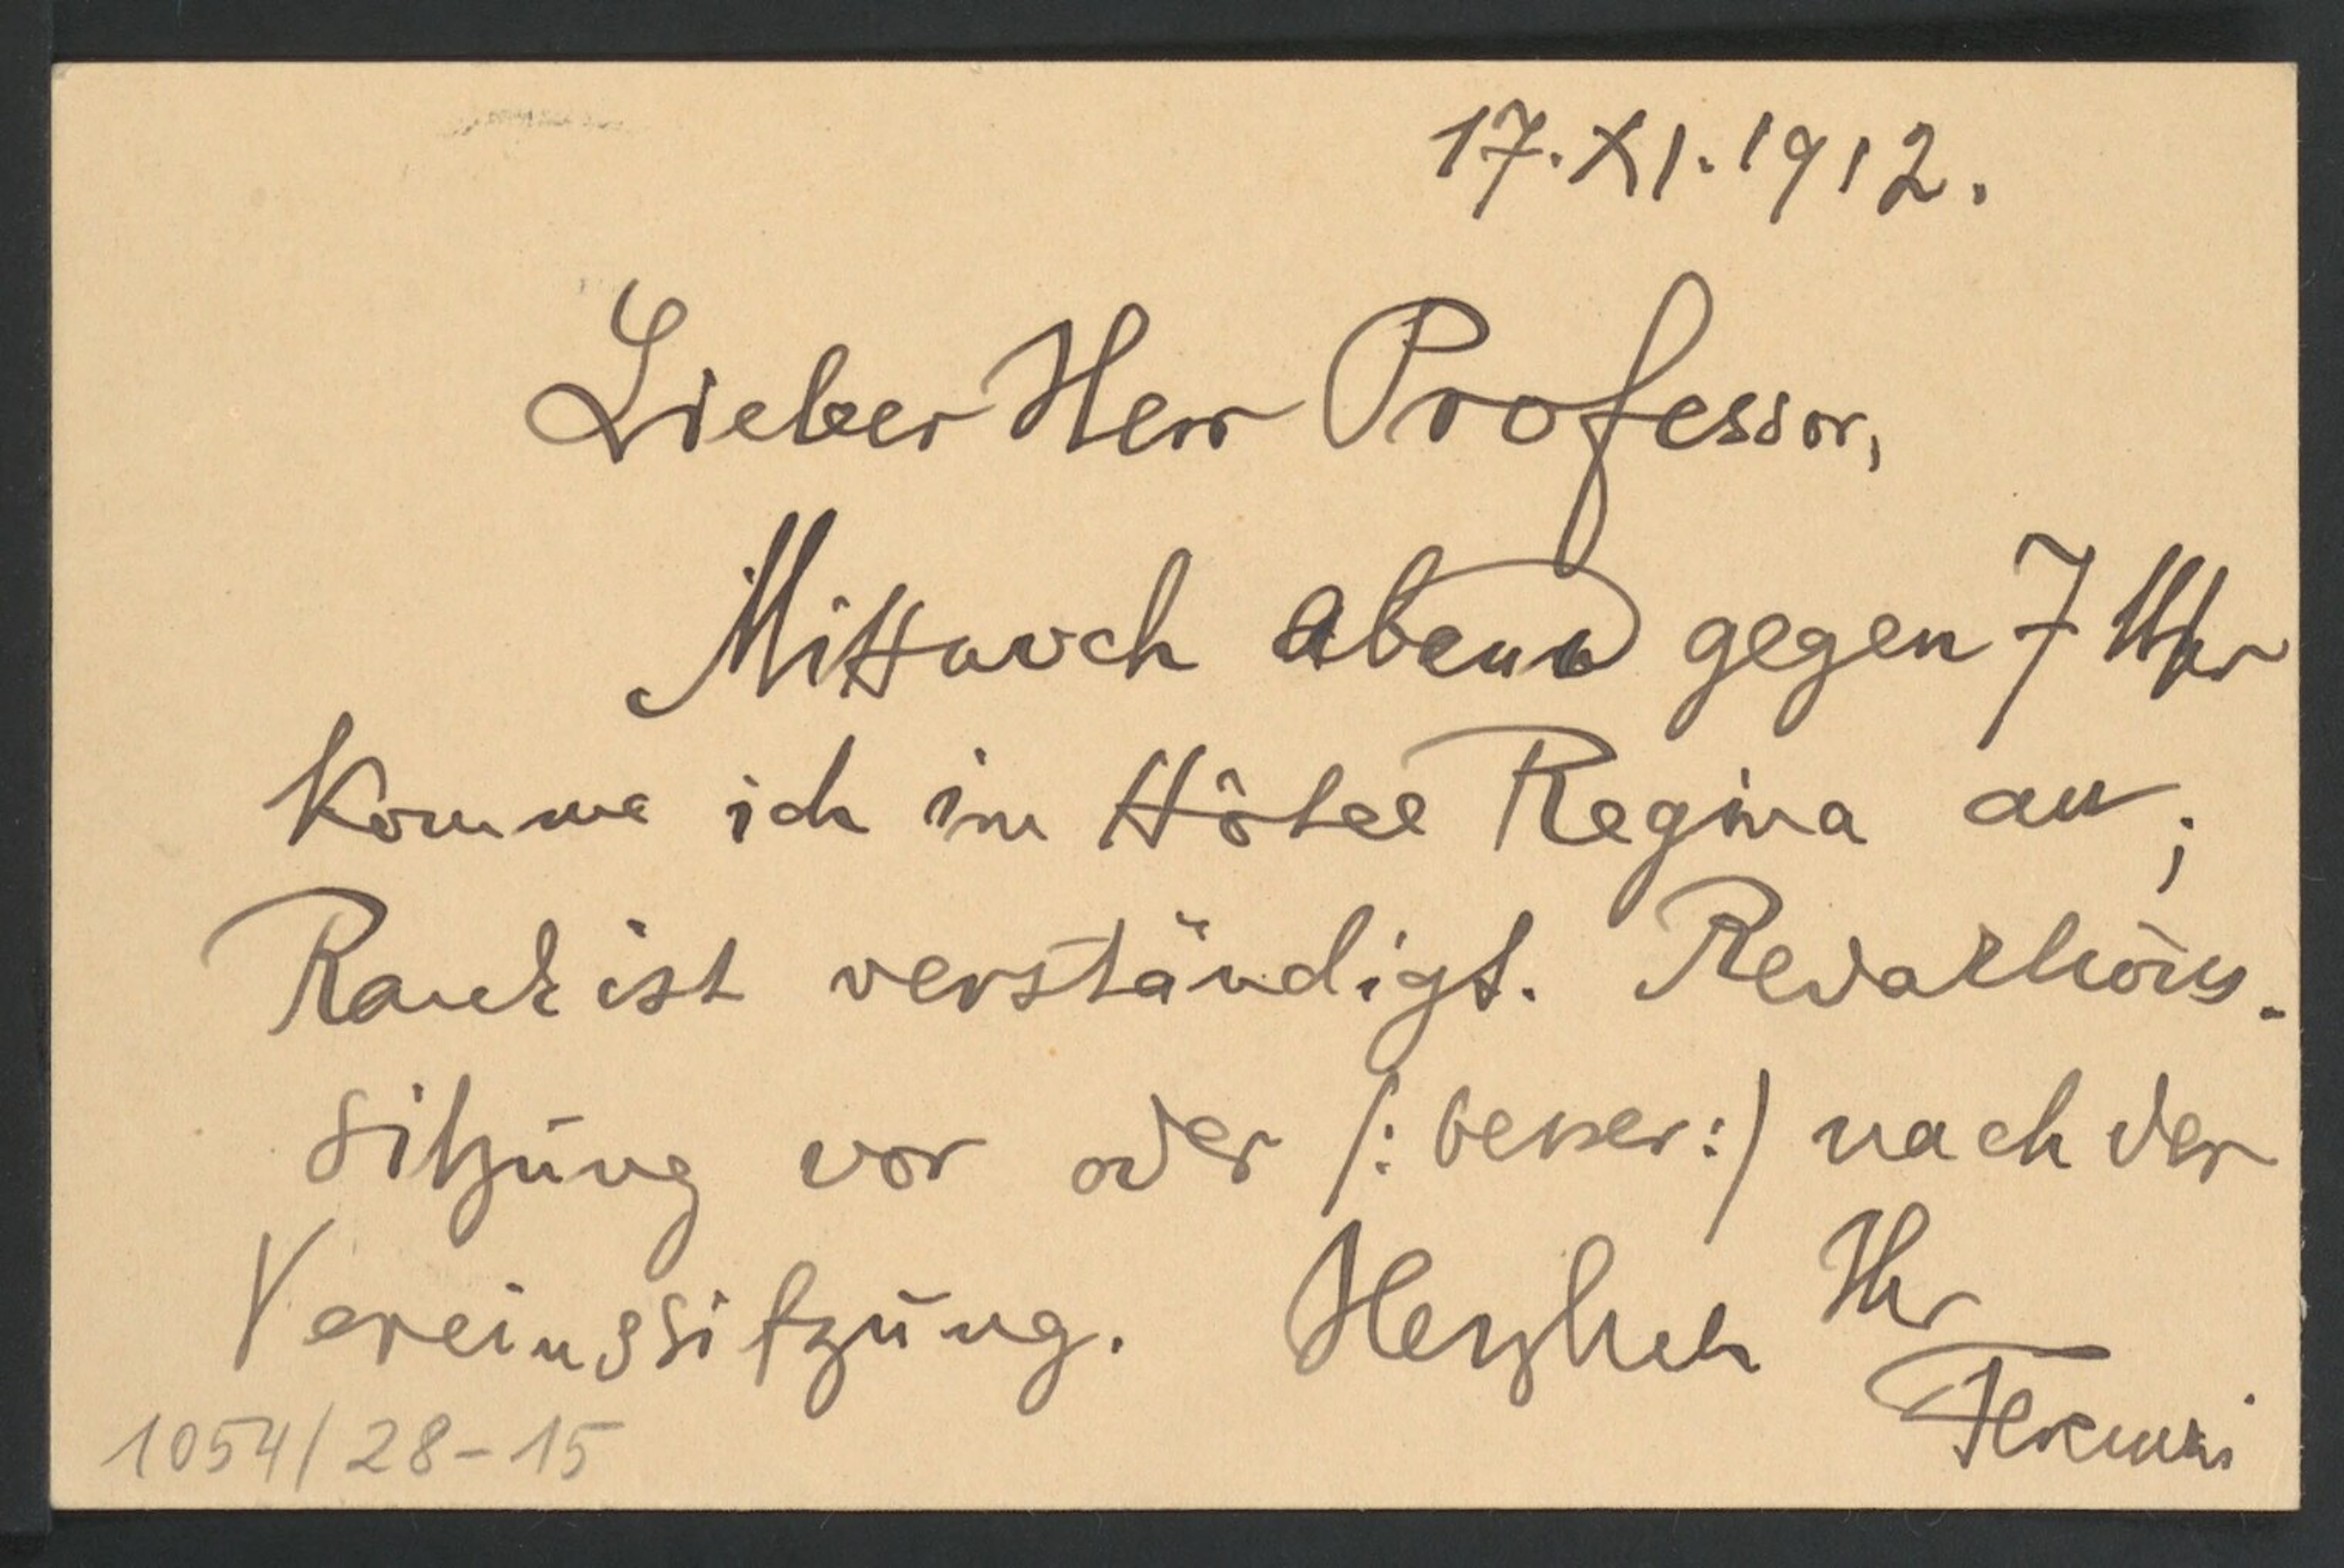 17.XI.1912.
Lieber Herr Professor,
Mittwoch abend gegen 7 Uhr
komme ich im Hôtel Regina an;
Rank ist verständigt. Redaktions-
sitzung vor oder /: besser :/ nach der
Vereinssitzung. Herzlich Ihr
Ferenczi
1054/28-15